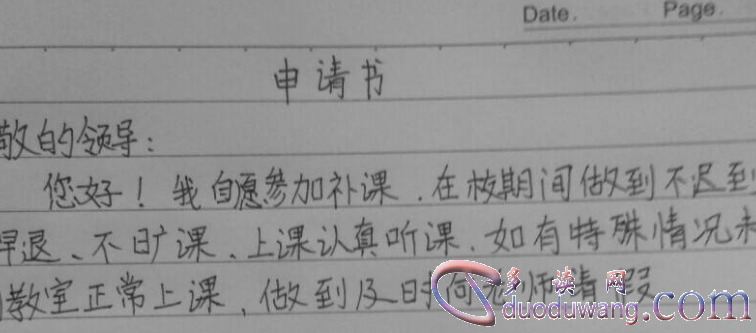 Date. Page.
申请书
敬的领导：
您好！我自愿参加补课，在校期间做到不迟到
早退、不旷课、上课认真听课，如有特殊情况未
教室正常上课，做到及时向老师请假
多读网
duoduwang.com